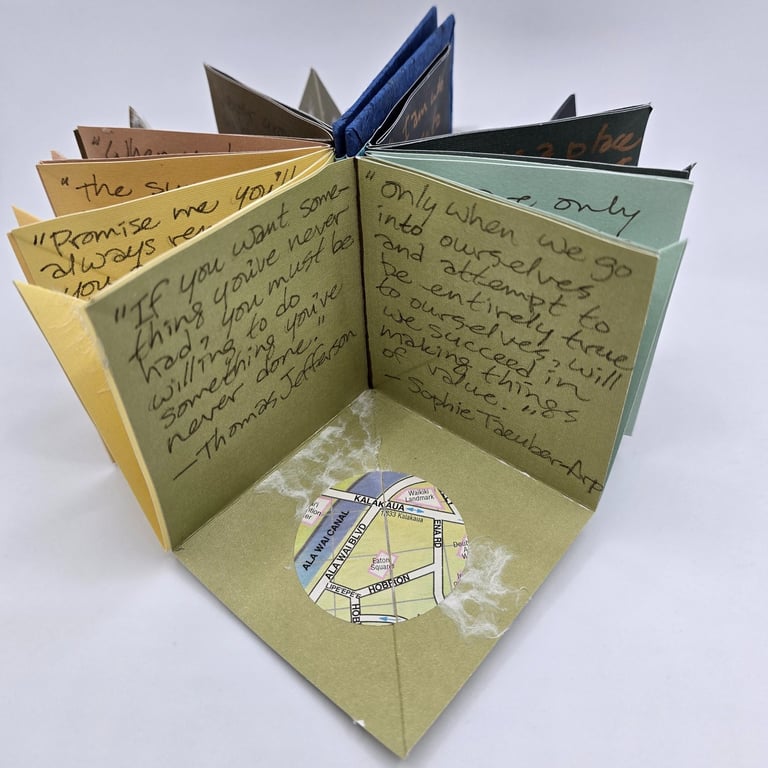 "If you want some-
thing you've never
had, you must be
willing to do
something you've
never done."
—Thomas Jefferson
"Only when we go
into ourselves
and attempt to
be entirely true
to ourselves, will
we succeed in
making things
of value."
— Sophie Taeuber-Arp
"Promise me you'll
always
you
"The
"When
only
a place
I am
KALAKAUA
Waikiki
Landmark
1833 Kalakaua
ALA WAI CANAL
ALA WAI BLVD
ENA RD
Eaton
Square
HOBRON
LIPEEPEE
HOB